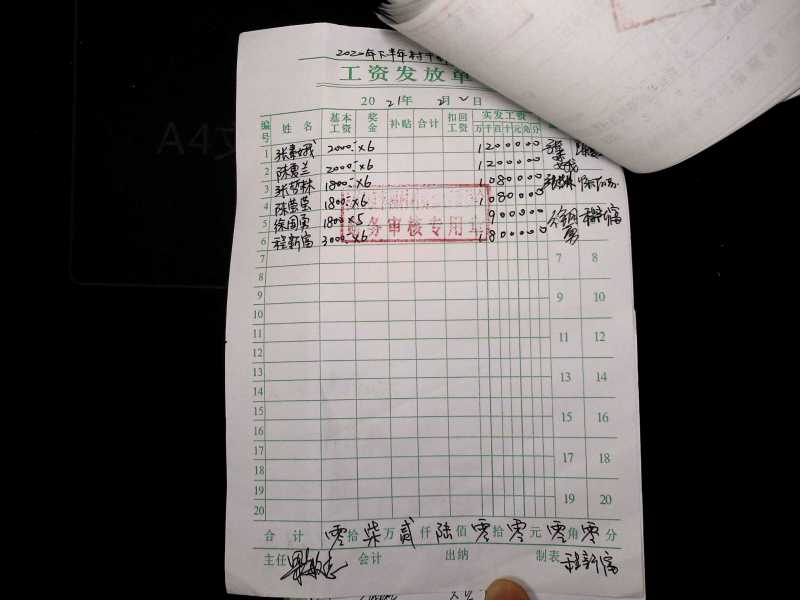 2020年下半年村干
工资发放单
2021年2月2日
编号 姓名 基本工资 奖金 补贴 合计 扣回工资 实发工资
万千百十元角分
1 张素娥 2000-×6 1200000
2 陈雪兰 2000-×6 1200000
3 张哲林 1800-×6 1080000
4 陈莹莹 1800-×6 1080000
5 徐国勇 1800×5 900000
6 程新富 3000-×6 1800000
财务审核专用章
7 7 8
8
9 9 10
10
11 11 12
12
13 13 14
14
15 15 16
16
17 17 18
18
19 19 20
20
合计 零拾柒万贰仟陆佰零拾零元零角零分
主任 会计 出纳 制表 程新富